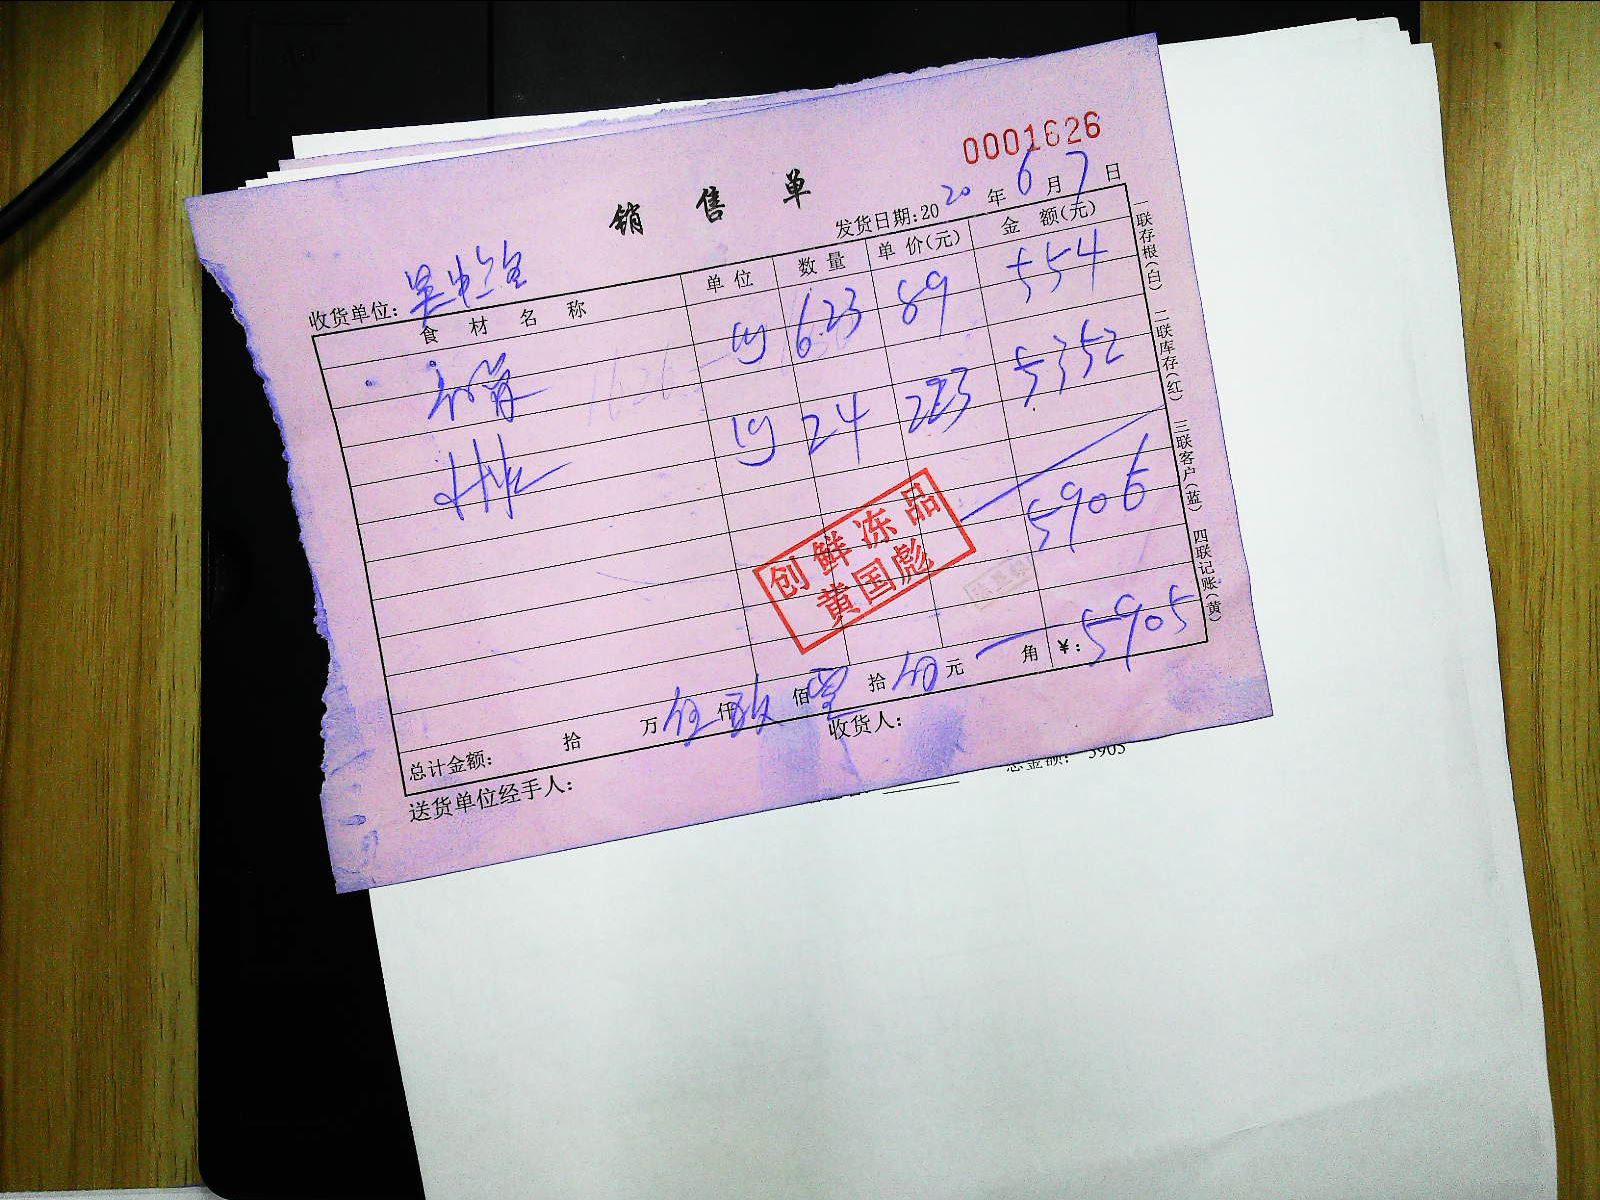 0001626
销 售 单
发货日期:2020 年 6 月 7 日
收货单位:
食 材 名 称 单 位 数 量 单 价(元) 金 额(元)
623 89 554
24 223 5352
5906
创鲜冻品
黄国彪
总计金额: 拾 万 伍 仟 玖 佰 零 拾 伍 元 角 ¥: 5905
送货单位经手人: 收货人:
一联存根(白) 二联库存(红) 三联客户(蓝) 四联记账(黄)
总金额: 5905